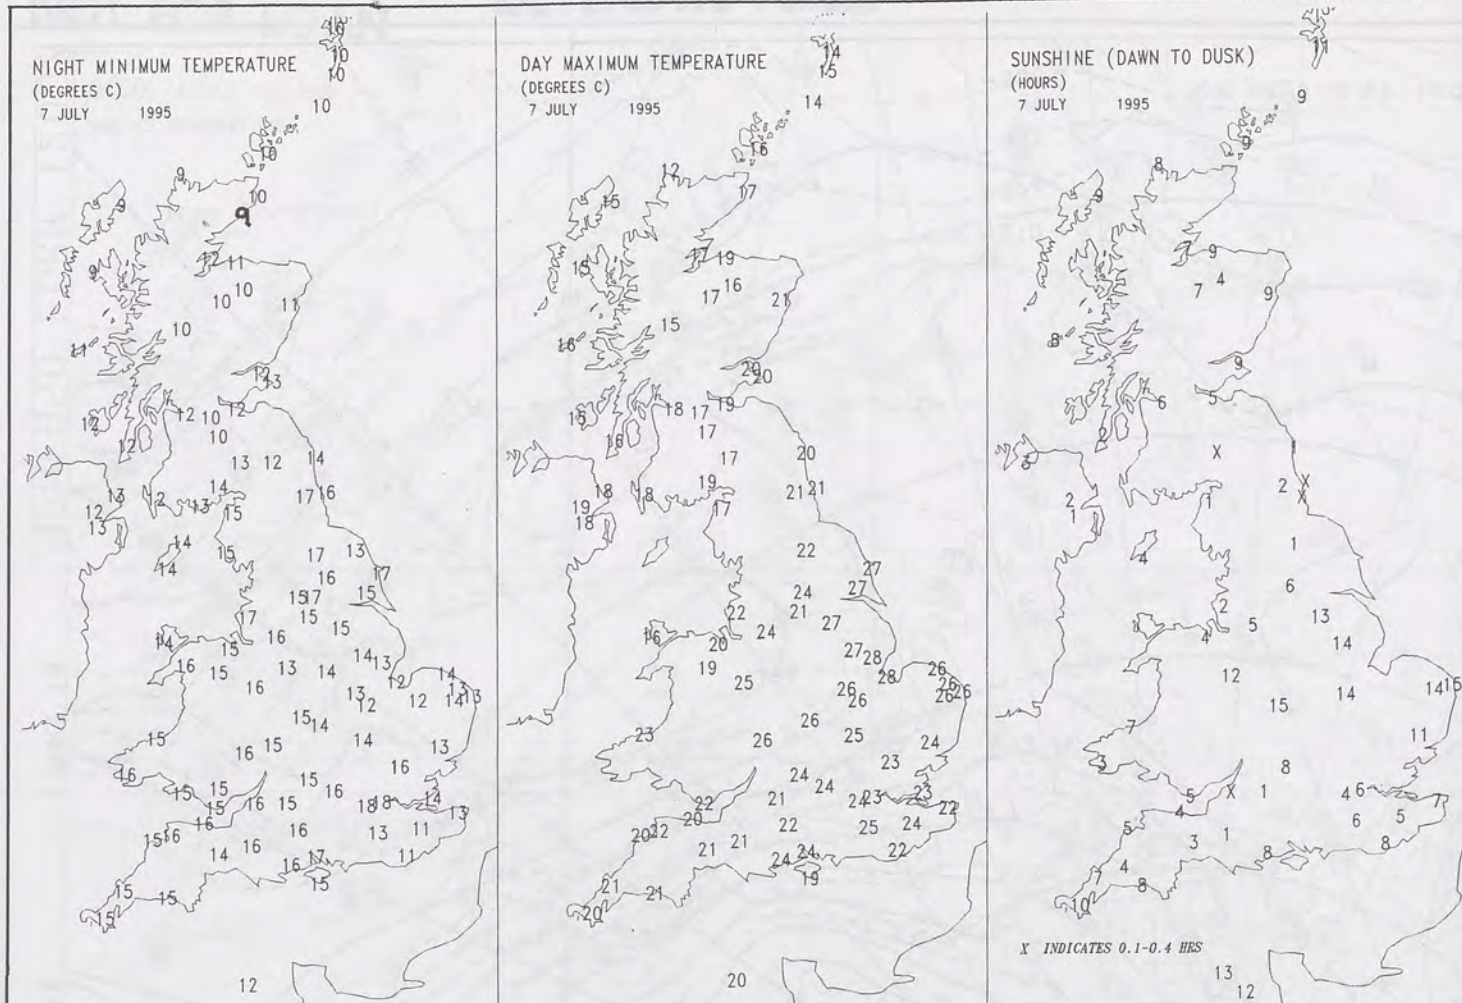 NIGHT MINIMUM TEMPERATURE
(DEGREES C)
7 JULY 1995
10
10
10
10
10
9
10
9
9
12 11
9
10
10
11
10
11
12
13
12 10 12
12
12
10
13 12 14
14
13 12 13 17 16
12
15
13
14
15 17 13
14
16 17
15 17 15
17 15
15
14 15 16
16 15 13 14 14 13
14
16 13 12 12 13 13
12 14
15 14
15 16 15 14 13
16 16
15 15 15 16
15 16 15 18 18 14
16 13
15 16 16 13 11
14 16 17 11
16
15 15 15
15
12
DAY MAXIMUM TEMPERATURE
(DEGREES C)
7 JULY 1995
14
15
14
16
12
15 17
17 19
15
17 16
21
15
16
20
20
15 18 17 19
16 17
17 20
19
18 18 21 21
19 17
18
22
27
24 27
22 21
16 24 27
20
19 27 28
25 28 26
26 26 26 26
26
26
23 26 25 24
23
24
24
22 21 24 23 23
20 22
20 22 22 25 24
21 21 24 24 22
19
21
21
20
20
SUNSHINE (DAWN TO DUSK)
(HOURS)
7 JULY 1995
10
11
9
9
8
9
7 9
7 4
9
8
9
6 5
2
3 X 1
2 X
2 1 X
1
4 1
6
2 13
1 4 5
14
12
15 14 14 15
7 11
3 8
5 X 1 4 6
4 7
5 3 1 6 5
8 8
4
7 8
10
X INDICATES 0.1-0.4 HRS
13
12